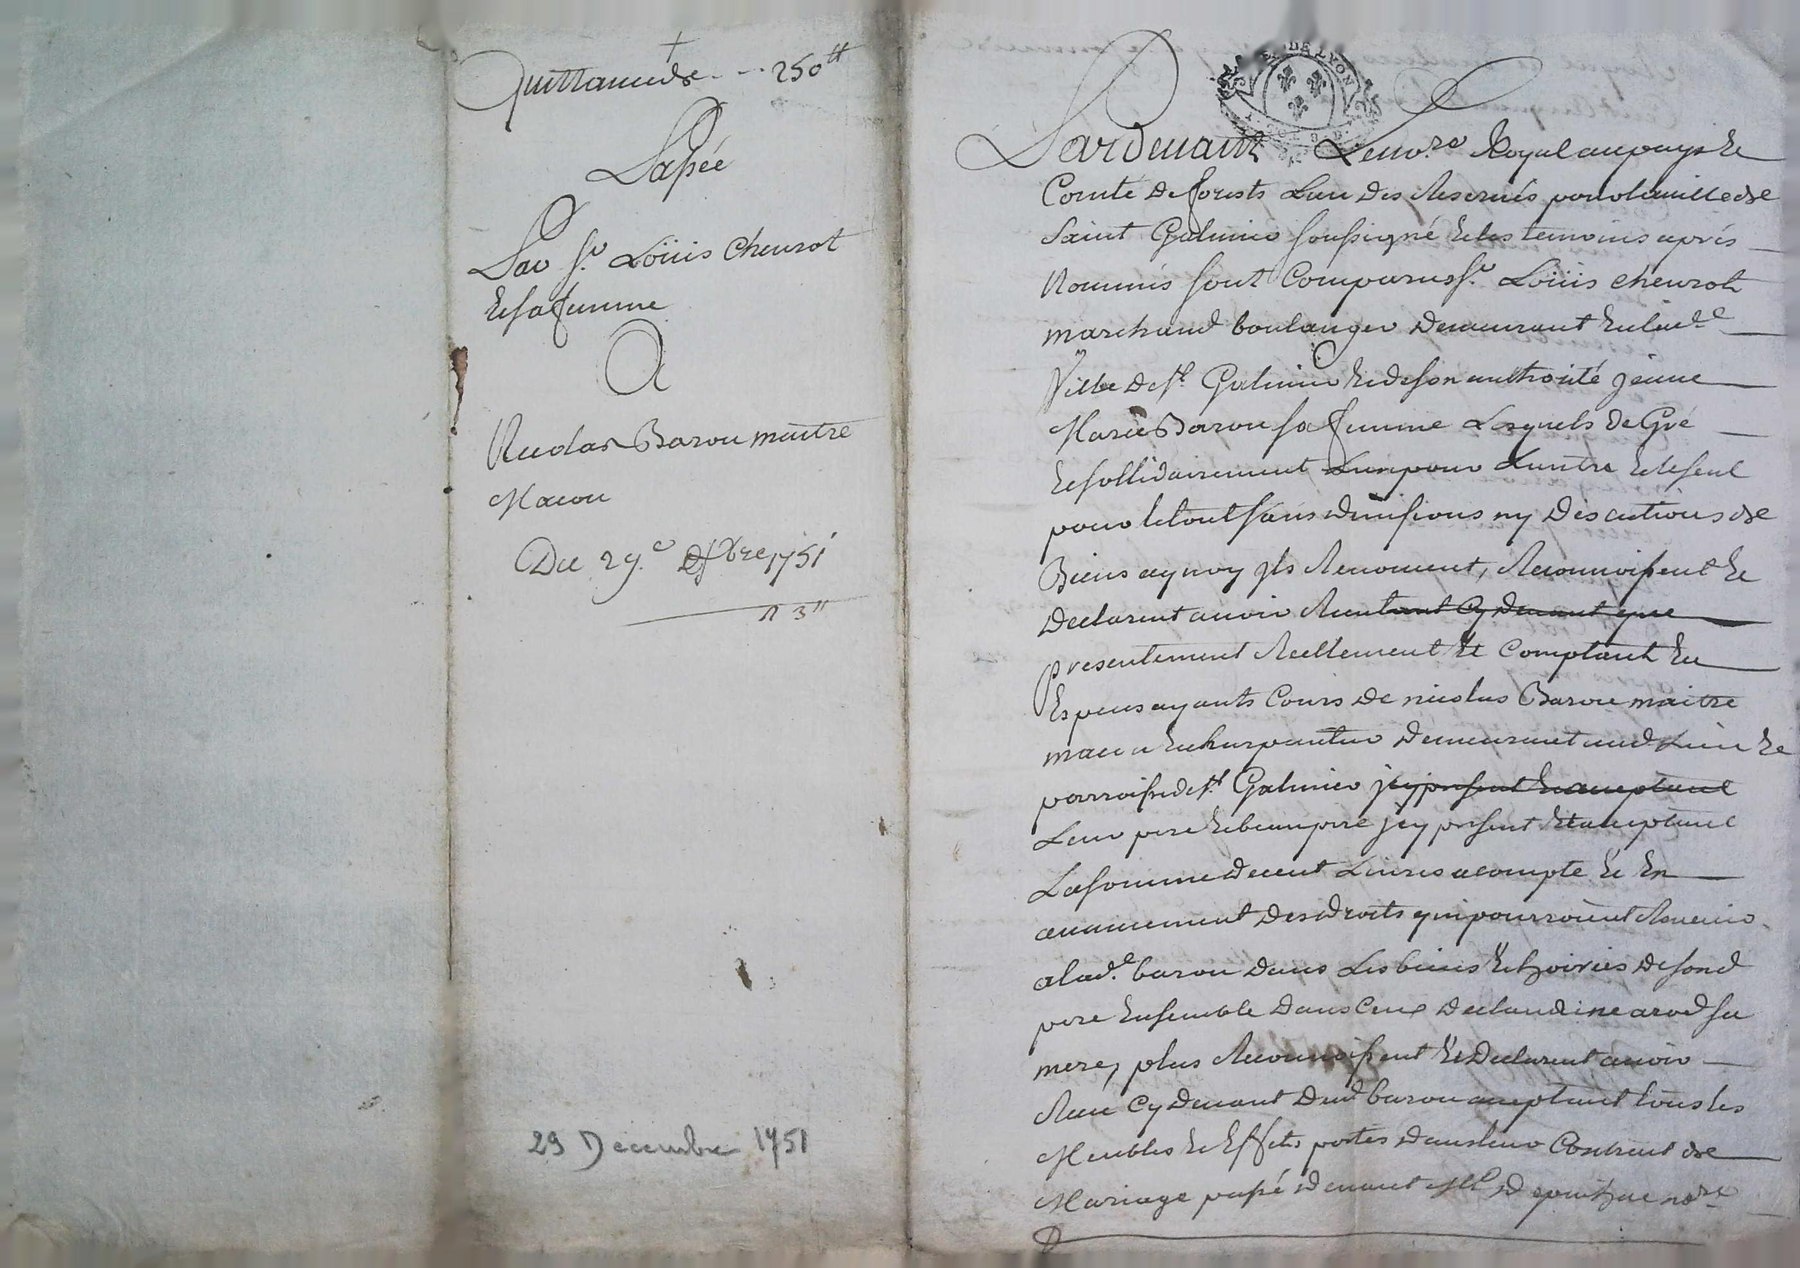 Quittance de -- 250tt
Passée
Par Sr. Loüis Chevrot
Et sa femme
A
Nicolas Barou maitre
Macon
Du 29e Xbre 1751
n 3tt
29 Decembre 1751
DE LYON
Pardevant Le nore. Royal au pays Et
Comté de forests Lun des Reservés pour la ville de
Saint Galmier soussigné Et les temoins apres
Nommés sont Comparus sr. Loüis chevrot
marchand boulanger demeurant En lade.
Ville de st. Galmier Et de son authorité jeanne
Marie Barou sa femme Lesquels de Gré
Et sollidairement Lun pour Lautre Et le seul
pour le tout sans divisions ny discutions de
Biens a quoy jls Renoncent, Reconnoissent Et
Declarent avoir Receu tant Cy devant que
presentement Reellement Et Comptant En
Especes ayants Cours de nicolas Barou maitre
macon Et charpentier demeurant aud. Lieu Et
parroisse de st. Galmier jcy present Et acceptant
Leur pere Et beaupere jcy present Et acceptant
La somme de cent Livres a compte Et En
avancement des droits qui pourroient Revenir
a lade. barou dans Les biens Et hoiries de sond.
pere Ensemble dans Ceux de claudine arod sa
mere, plus Reconnoissent Et Declarent avoir
Receu Cy devant dud. barou acceptant tous les
Meubles Et Effets portés dans leur Contract de
Mariage passé devant Me nore.